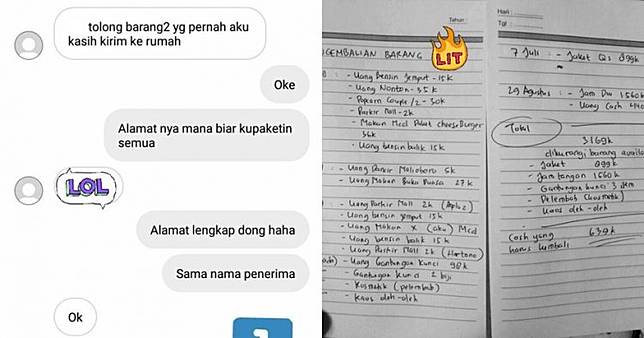 tolong barang2 yg pernah aku
kasih kirim ke rumah
Oke
Alamat nya mana biar kupaketin
semua
LOL
Alamat lengkap dong haha
Sama nama penerima
Ok
Tahun
GEMBALIAN BARANG
LIT
- Uang Bensin Jemput - 15k
- Uang Nonton - 35k
- Popcorn Couple /2 - 30k
- Parkir Mall - 2k
- Makan Mcd Paket cheese Burger
36k
- Uang bensin balik 15k
- Uang Parkir Malioboro 5k
- Uang Makan Buka Puasa 27k
- Uang Parkir Mall 2k (Aplaz)
- Uang bensin jemput 15k
- Uang Makan x (aku) Mcd
- Uang bensin balik 15k
- Uang Parkir Mall 2k (Hartono)
- Uang Gantungan Kunci 90k
- Gantungan Kunci 2 biji
- Kosmetik (pelembab)
- Kaos oleh-oleh
Hari
Tgl
7 Juli : - Jaket Qs 899k
29 Agustus : - Jam Dw 1560k
- Uang Cash
Total
3169k
dikurangi barang
- Jaket 899k
- Jam tangan 1560k
- Gantungan kunci 3
- Pelembab (kosmetik)
- Kaos oleh-oleh
Cash yang 639k
harus kembali